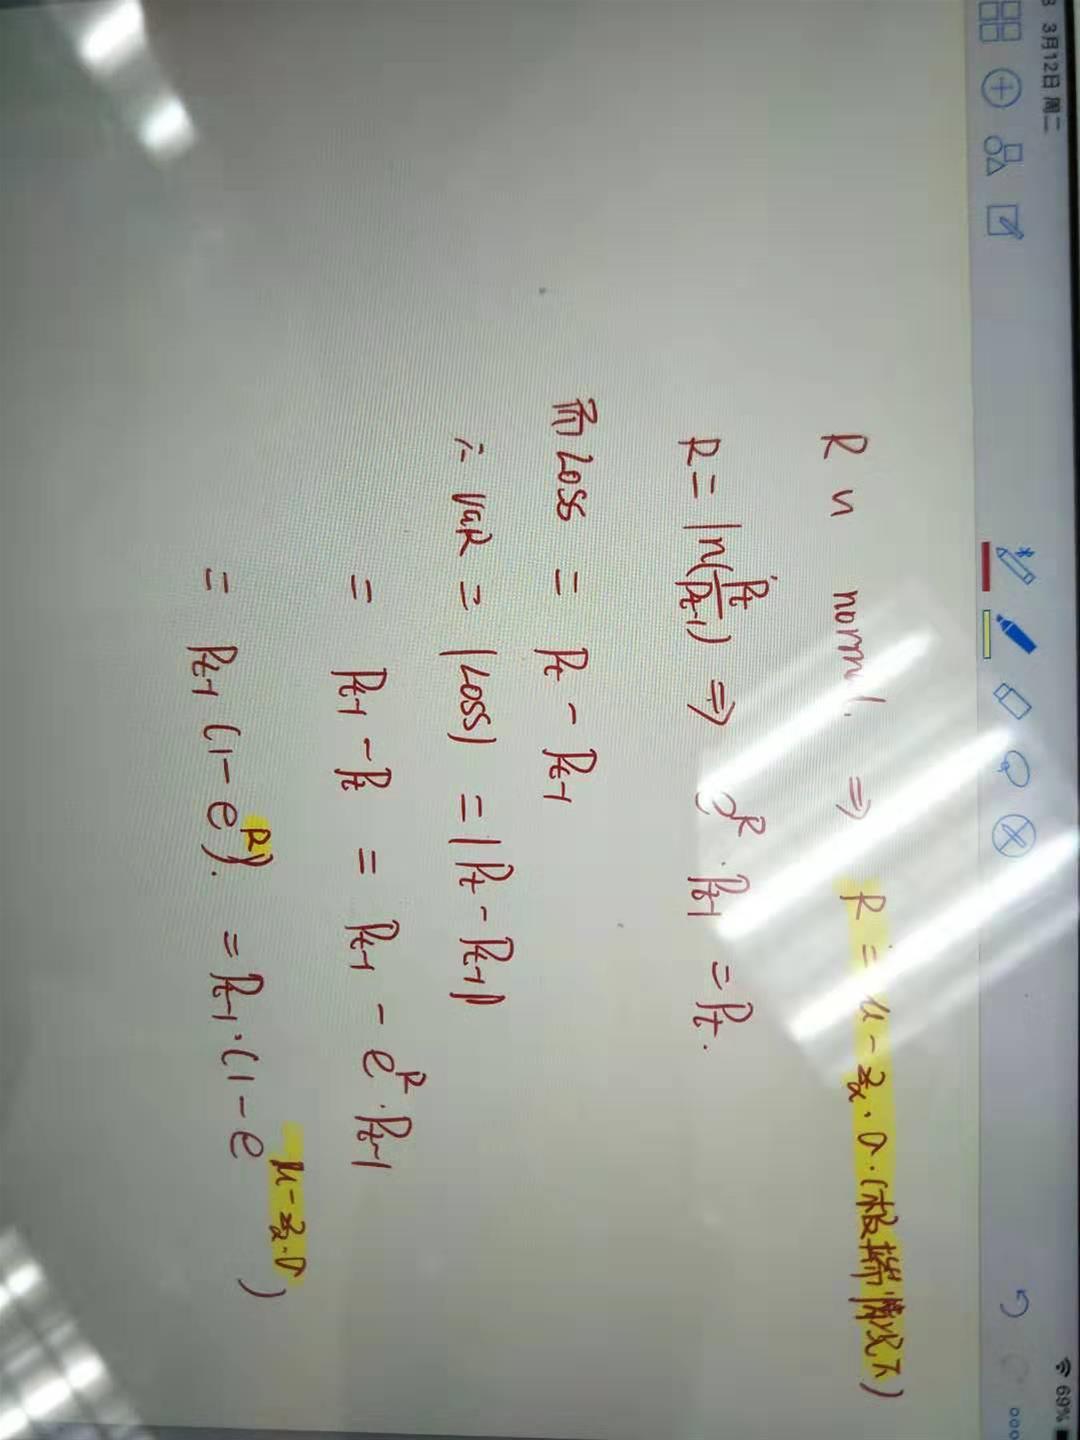 3月12日 周二
69%
R ~ normal. ⇒ R = μ - zα · σ · (极端情况下)
R = ln(Pt/Pt-1) ⇒ e^R · Pt-1 = Pt.
而 Loss = Pt - Pt-1
∴ VaR = |Loss| = |Pt - Pt-1|
= Pt-1 - Pt = Pt-1 - e^R · Pt-1
= Pt-1 (1 - e^R). = Pt-1 · (1 - e^(μ - zα · σ))